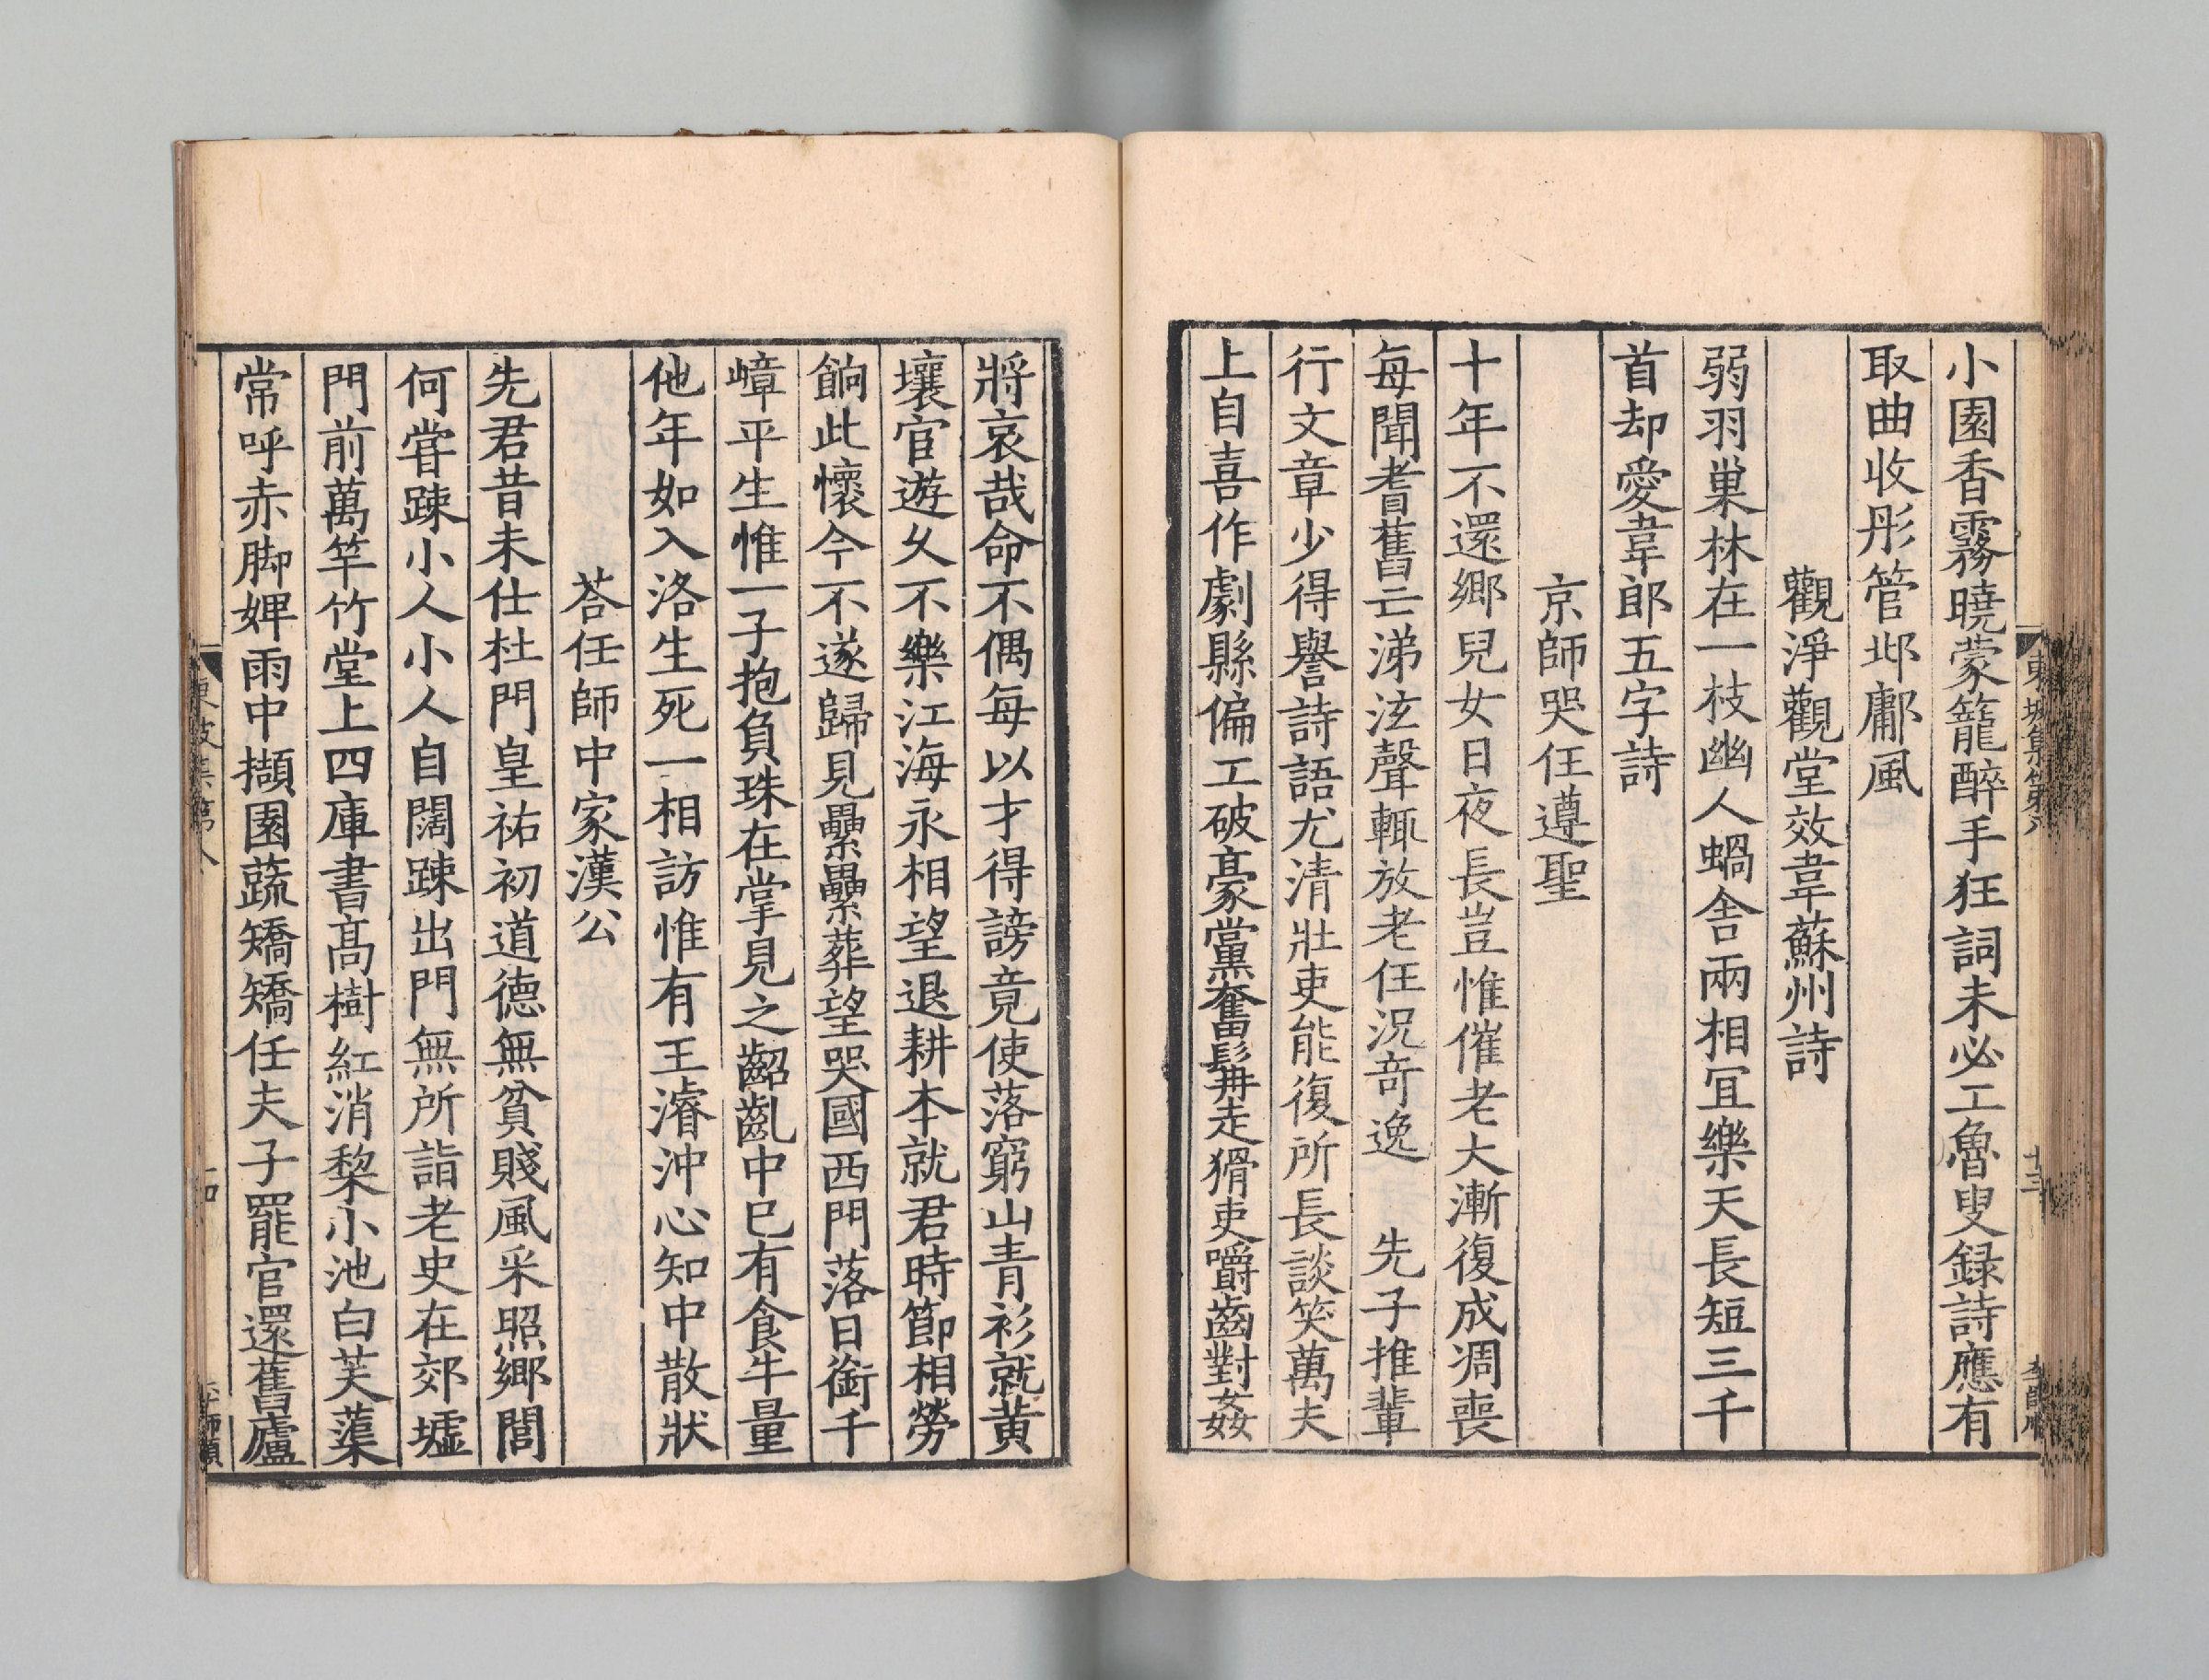 小園香霧曉蒙籠醉手狂詞未必工魯叟録詩應有
取曲收彤管邶鄘風
觀淨觀堂效韋蘇州詩
弱羽巢林在一枝幽人蝸舍兩相冝樂天長短三千
首却愛韋郎五字詩
京師哭任遵聖
十年不還鄉兒女日夜長豈惟催老大漸復成凋喪
每聞耆舊亡涕泫聲輒放老任況奇逸 先子推輩
行文章少得譽詩語尤清壯吏能復所長談笑萬夫
上自喜作劇縣偏工破豪黨奮髯走猾吏嚼齒對姦
將哀哉命不偶每以才得謗竟使落窮山青衫就黄
壤官遊久不樂江海永相望退耕本就君時節相勞
餉此懷今不遂歸見纍纍葬望哭國西門落日銜千
嶂平生惟一子抱負珠在掌見之齠齔中巳有食牛量
他年如入洛生死一相訪惟有王濬沖心知中散狀
荅任師中家漢公
先君昔未仕杜門皇祐初道德無貧賤風采照鄉閭
何甞踈小人小人自闊踈出門無所詣老史在郊墟
門前萬竿竹堂上四庫書髙樹紅消棃小池白芙蕖
常呼赤脚婢雨中擷園蔬矯矯任夫子罷官還舊廬
東坡集第八